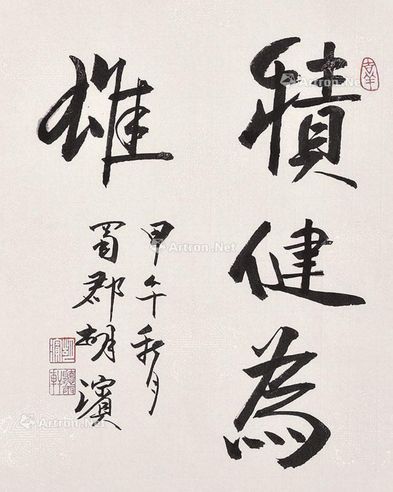 積健為
雄
甲午秋月
蜀郡胡濱
Artron.Net
Artron.Net
Artron.Net
Artron.Net